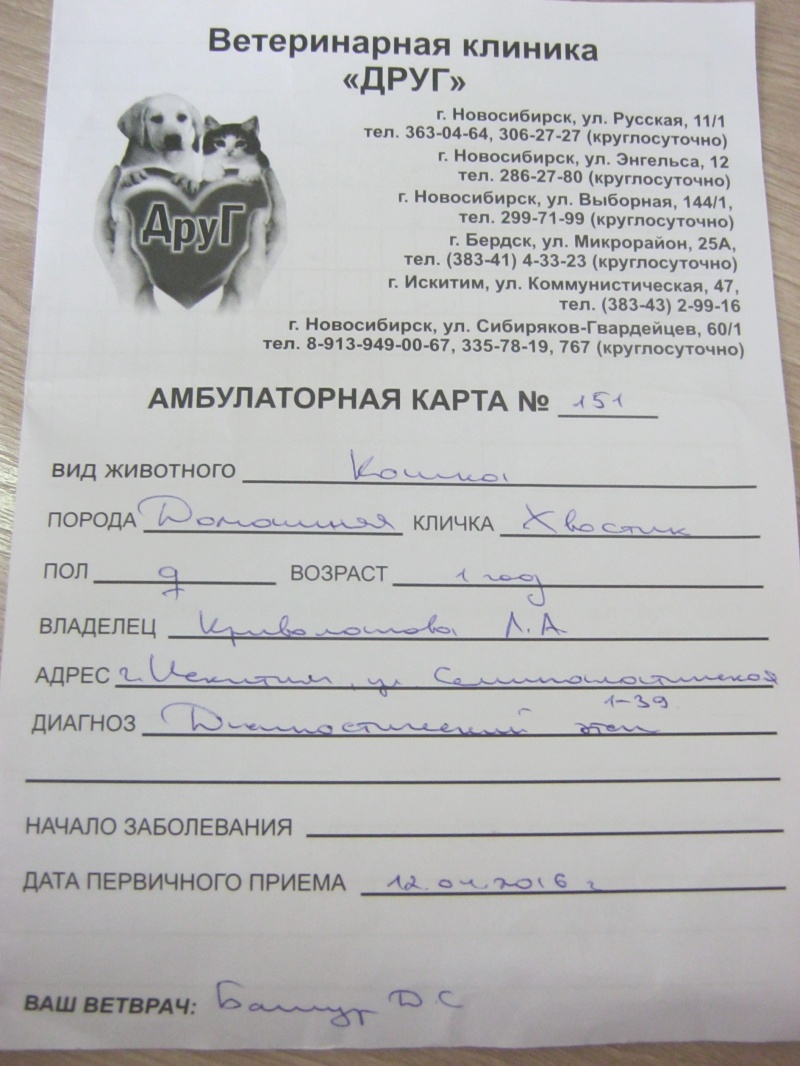 Ветеринарная клиника
«ДРУГ»
г. Новосибирск, ул. Русская, 11/1
тел. 363-04-64, 306-27-27 (круглосуточно)
г. Новосибирск, ул. Энгельса, 12
тел. 286-27-80 (круглосуточно)
г. Новосибирск, ул. Выборная, 144/1,
тел. 299-71-99 (круглосуточно)
г. Бердск, ул. Микрорайон, 25А,
тел. (383-41) 4-33-23 (круглосуточно)
г. Искитим, ул. Коммунистическая, 47,
тел. (383-43) 2-99-16
г. Новосибирск, ул. Сибиряков-Гвардейцев, 60/1
тел. 8-913-949-00-67, 335-78-19, 767 (круглосуточно)
ДруГ
АМБУЛАТОРНАЯ КАРТА № 151
ВИД ЖИВОТНОГО Кошка
ПОРОДА Домашняя КЛИЧКА Хвостик
ПОЛ ♀ ВОЗРАСТ 1 год
ВЛАДЕЛЕЦ Л.А
АДРЕС г. Искитим, ул Семипалатинская
1-39
ДИАГНОЗ Диагностический этап
НАЧАЛО ЗАБОЛЕВАНИЯ
ДАТА ПЕРВИЧНОГО ПРИЕМА 12.04.2016 г
ВАШ ВЕТВРАЧ: Д С